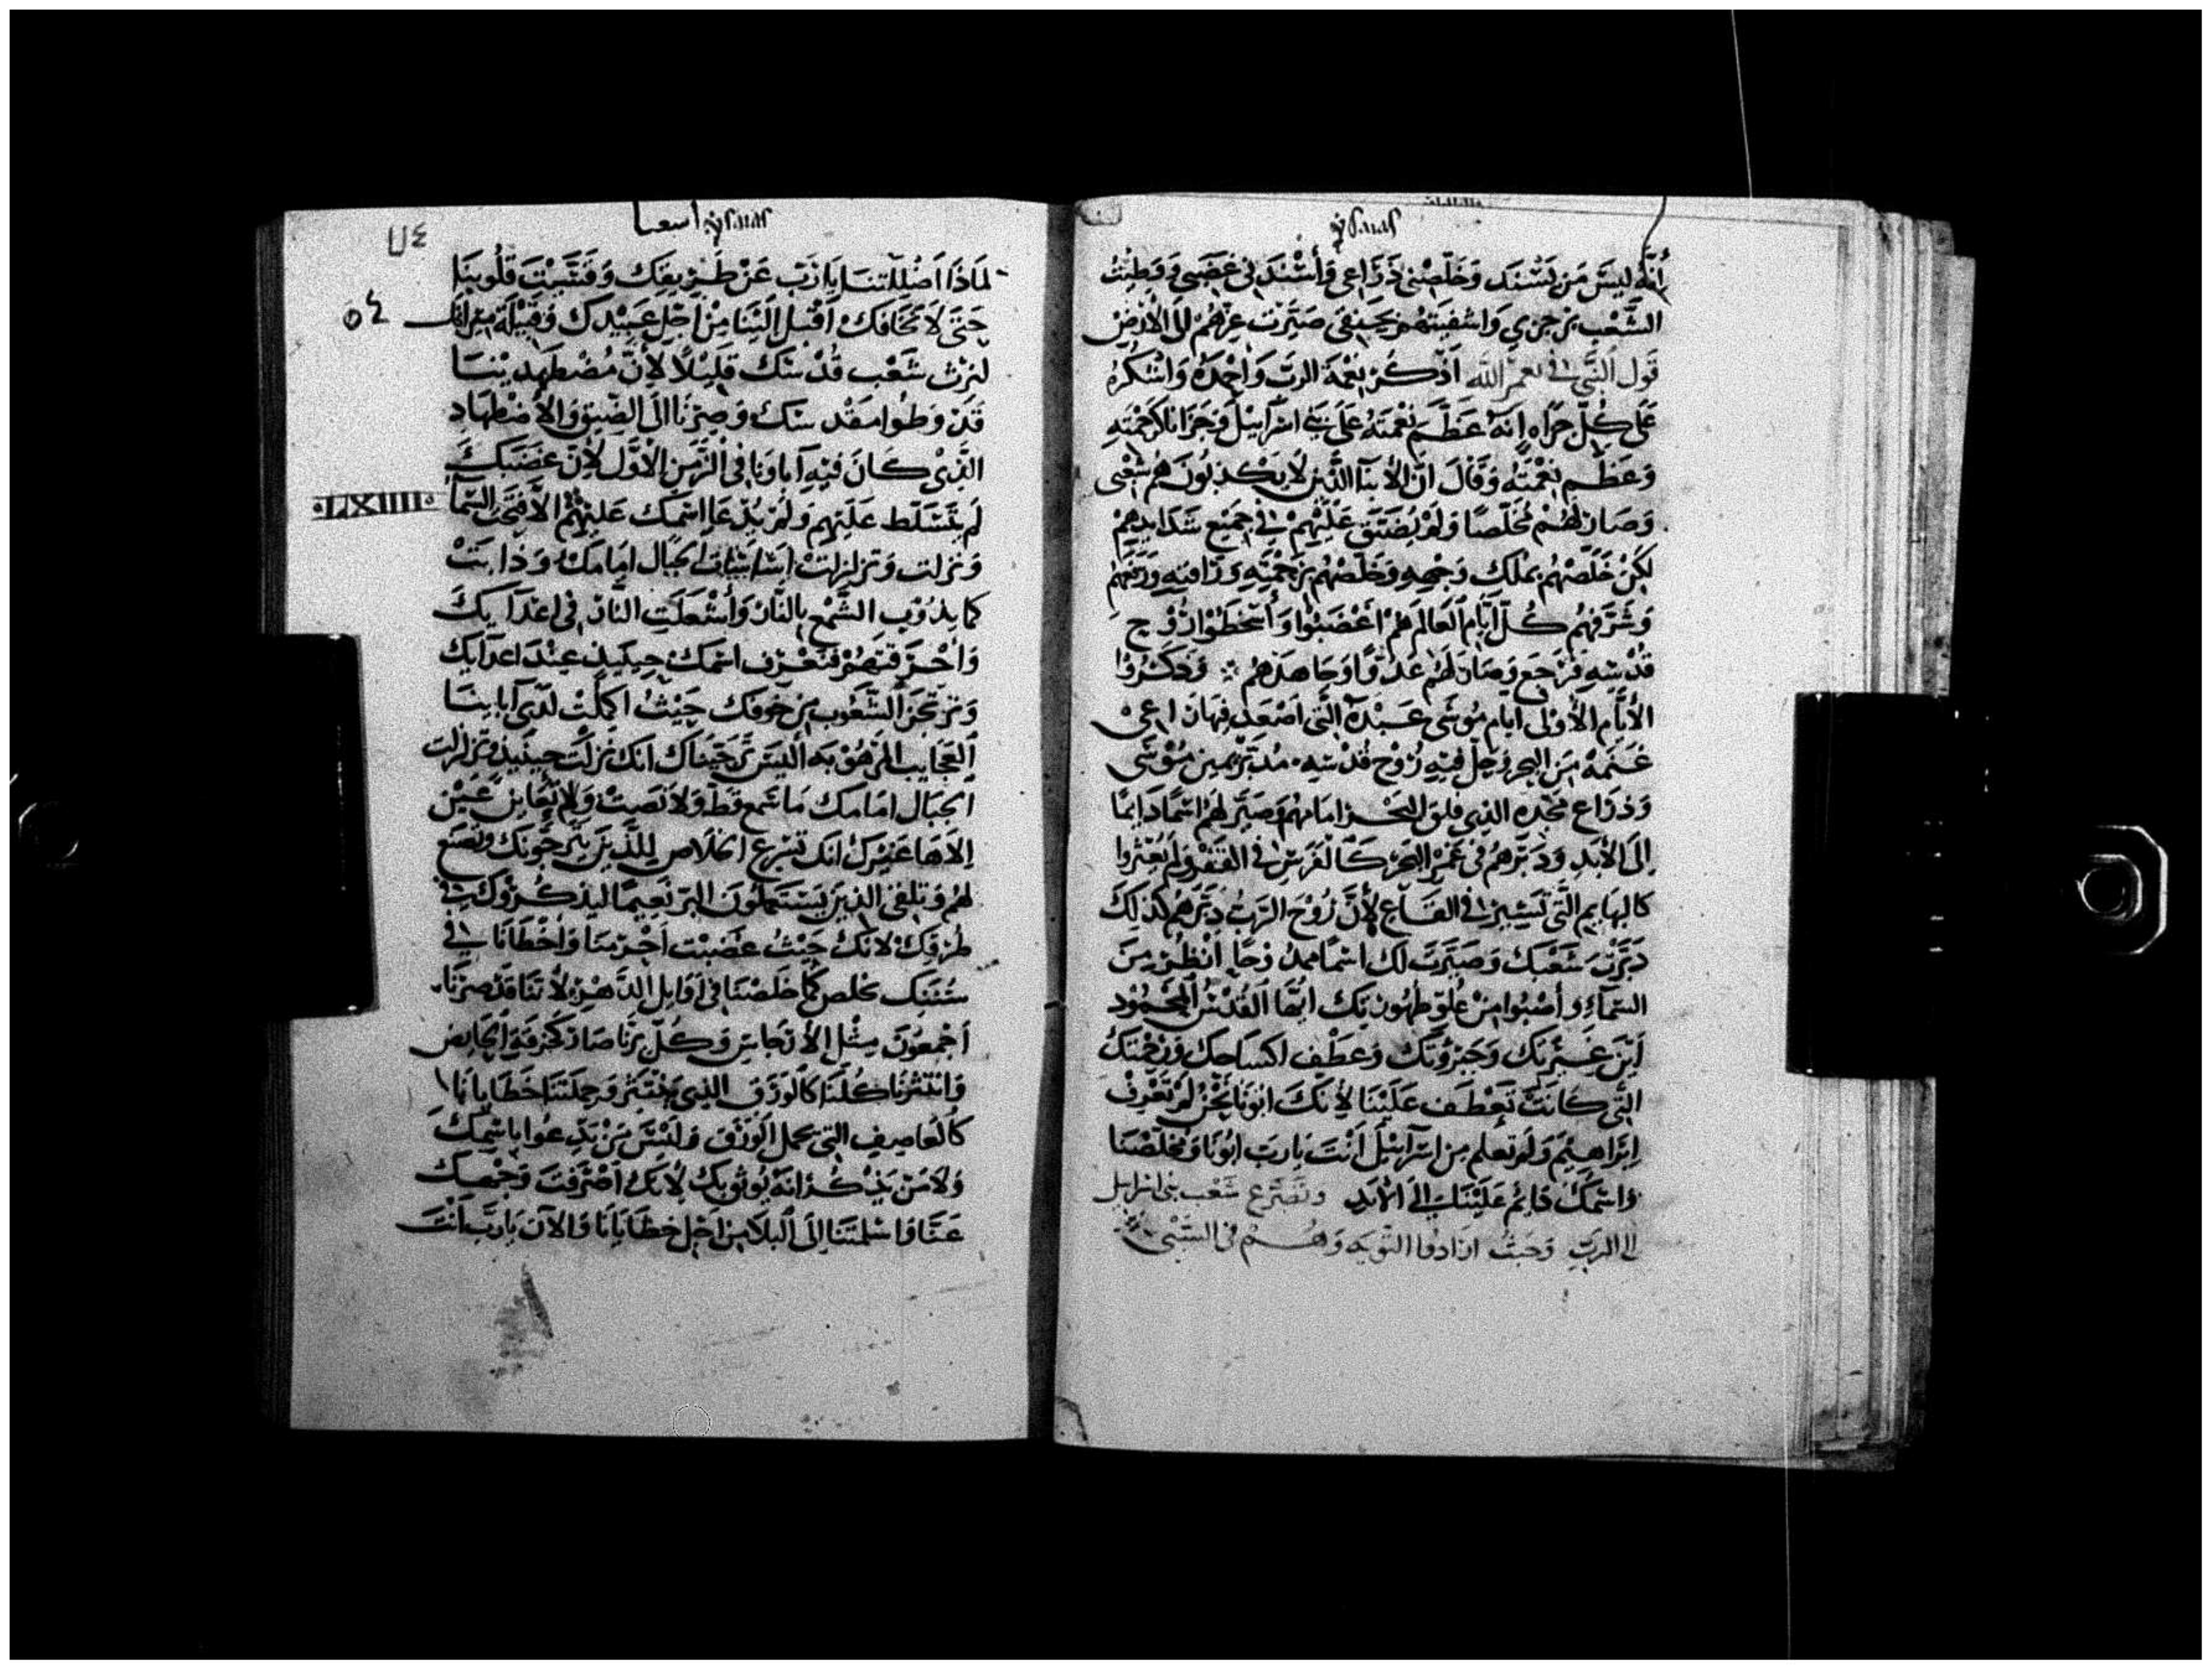 ysaias
أنه ليس من يسند وخلصني ذراعي وأسند في غضبي ووطيت
الشعب برجزي واسقيتهم بحنقي صيرت عزهم الى الأرض
قول النبي في نعم الله اذكر نعمة الرب واحمده واشكره
على كل جزاه إنه عظم نعمته على بني اسراييل وجزانا كرحمته
وعظم نعمته وقال ان الأبنا الذين لا يكدبون هم شعبي
وصار لهم مخلصا ولم يضيق عليهم في جميع شدايدهم
لكن خلصهم بملك وجهه وخلصهم برحمته ورافته ورفعهم
وشرفهم كل أيام العالم هم اغضبوا وأسخطوا روح
قدسه فرجع وصار لهم عدوا وجاهدهم وذكروا
الأيام الأولى ايام موسى عبده التي اصعد فيها راعي
غنمه من البحر وحل فيه روح قدسه مدبر يمين موسى
وذراع مجده الذي فلق البحر امامهم وصير لهم اسما دايما
إلى الأبد ودبرهم في غمر البحر كالفرس في القفر ولم يعثروا
كالبهايم التي تسير في القاع لأن روح الرب دبرهم كذلك
دبرت شعبك وصيرت لك اسما ممدوحا انظر من
السماء وأصبوا من علو طهورتك ايها القدس المحمود
أين غيرتك وجبروتك وعطف اكساحك ورحمتك
التي كانت تعطف علينا لأنك ابونا نحن لم تعرف
إبراهيم ولم تعلم من اسرآييل أنت يارب ابونا ومخلصنا
واسمك دايم علينا إلى الأبد وتضرع شعب بني اسرايل
الى الرب وحيث ارادوا التوبه وهم في السبي
اسعيا ysaias
لماذا اضللتنا يا رب عن طريقك وقسيت قلوبنا
حتى لا نخافك اقبل الينا من اجل عبيدك وقبيلة ميراثك
لنرث شعب قدسك قليلا لإن مضطهدينا
قد وطوا مقدسك وصرنا الى الضيق والاضطهاد
الذي كان فيه آباونا في الزمن الأول لإن غضبك
·LXIIII·
لم يتسلط عليهم ولم يدعا اسمك عليهم الا فتحت السما
ونزلت وتزلزلت اساسات الجبال امامك وذابت
كما يذوب الشمع بالنار وأشعلت النار في اعدآيك
وأحرقتهم فتعرف اسمك حينيذ عند اعدآيك
وترتجز الشعوب من خوفك حيث اكملت لدى آبابنا
العجايب المرهوبه أليس ترحبناك انك نزلت حينيذ وتزلزلت
الجبال امامك ما سمع قط ولا نصت ولا تعاين عين
إلاها غيرك انك تسرع الخلاص للذين يرجونك وتصنع
لهم وتلقى الذين يستعملون البر نعيما ليذكروك في
طرقك لانك حيث غضبت اجرمنا واخطانا في
سننك نخلص كما خلصنا في اوايل الدهر لأننا قد صرنا
اجمعون مثل الأنجاس وكل برنا صار كخرقة الحايض
وانتثرنا كلنا كالورق الذي ينتثر وحملتنا خطايانا
كالعاصيف التي تحمل الورق وليس من يدعوا باسمك
ولا من يذكر انه يوثق بك لأنك اصرفت وجهك
عنا واسلمتنا إلى البلا من اجل خطايانا والآن يارب أنت